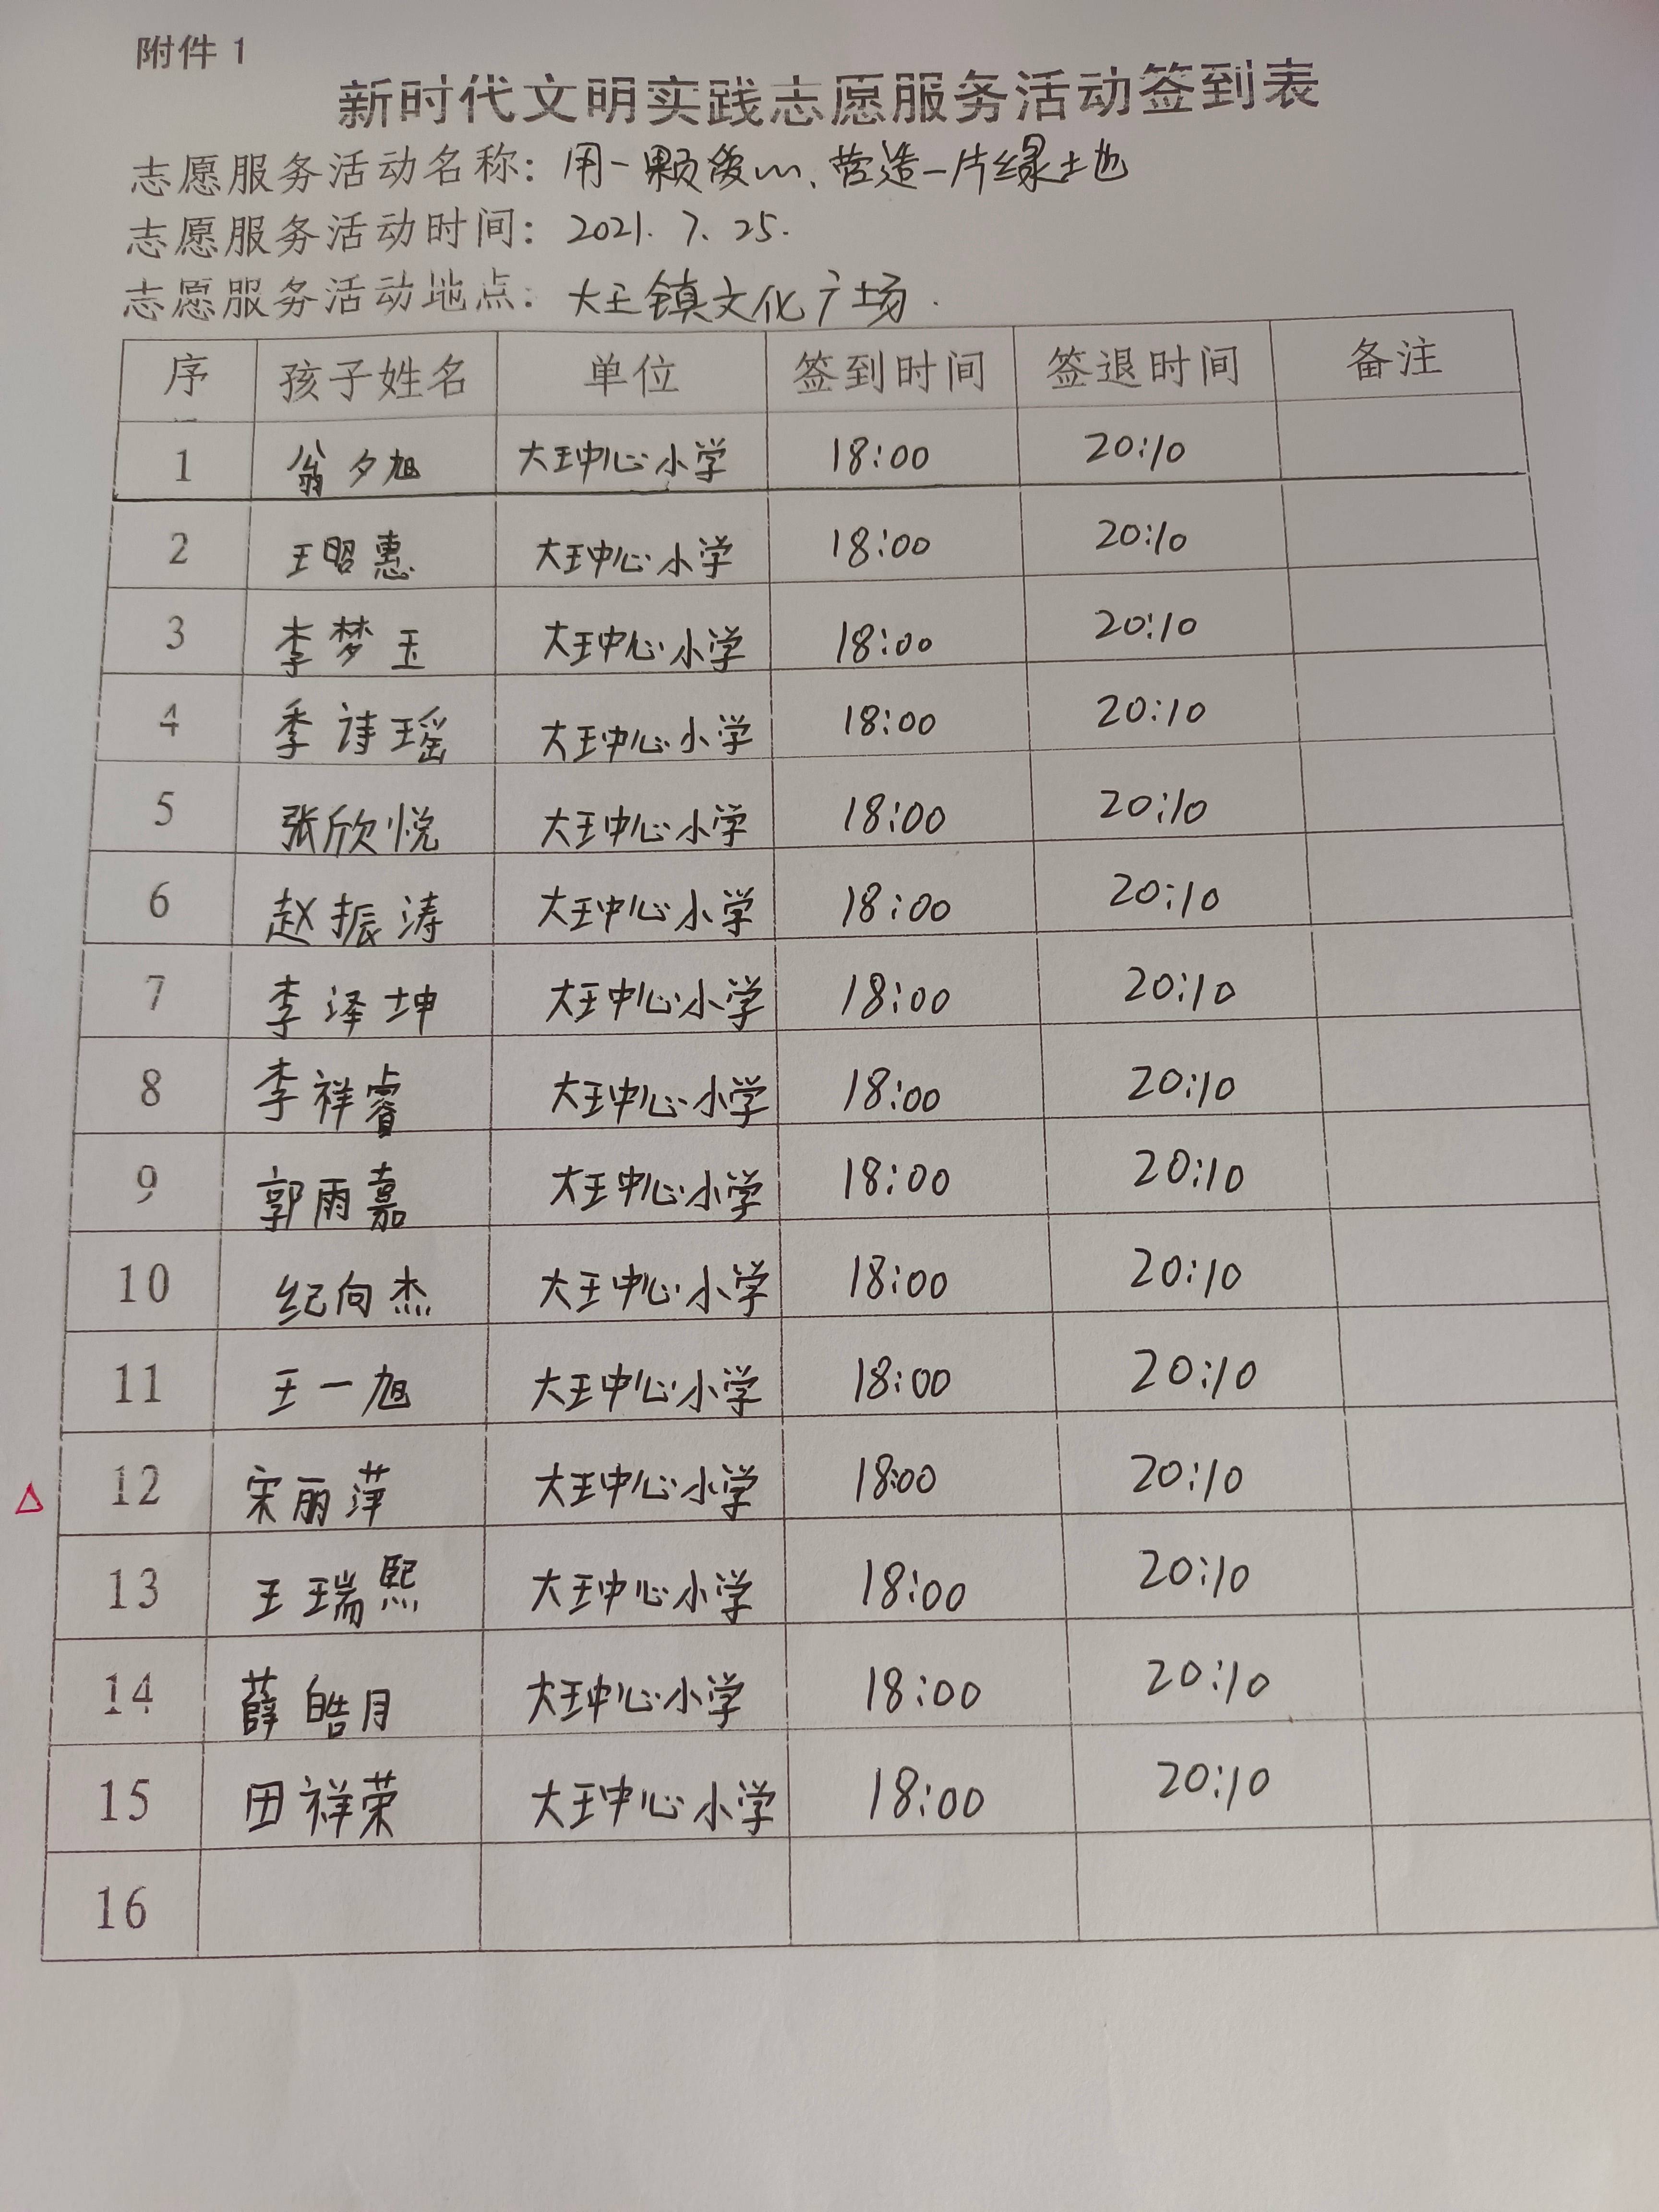 附件 1
新时代文明实践志愿服务活动签到表
志愿服务活动名称: 用一颗爱心、营造一片绿土地
志愿服务活动时间: 2021. 7. 25.
志愿服务活动地点: 大王镇文化广场.
序 孩子姓名 单位 签到时间 签退时间 备注
1 翁夕旭 大王中心小学 18:00 20:10
2 王昭惠 大王中心小学 18:00 20:10
3 李梦玉 大王中心小学 18:00 20:10
4 季诗瑶 大王中心小学 18:00 20:10
5 张欣悦 大王中心小学 18:00 20:10
6 赵振涛 大王中心小学 18:00 20:10
7 李泽坤 大王中心小学 18:00 20:10
8 李祥睿 大王中心小学 18:00 20:10
9 郭雨嘉 大王中心小学 18:00 20:10
10 纪向杰 大王中心小学 18:00 20:10
11 王一旭 大王中心小学 18:00 20:10
△ 12 宋丽萍 大王中心小学 18:00 20:10
13 王瑞熙 大王中心小学 18:00 20:10
14 薛皓月 大王中心小学 18:00 20:10
15 田祥荣 大王中心小学 18:00 20:10
16